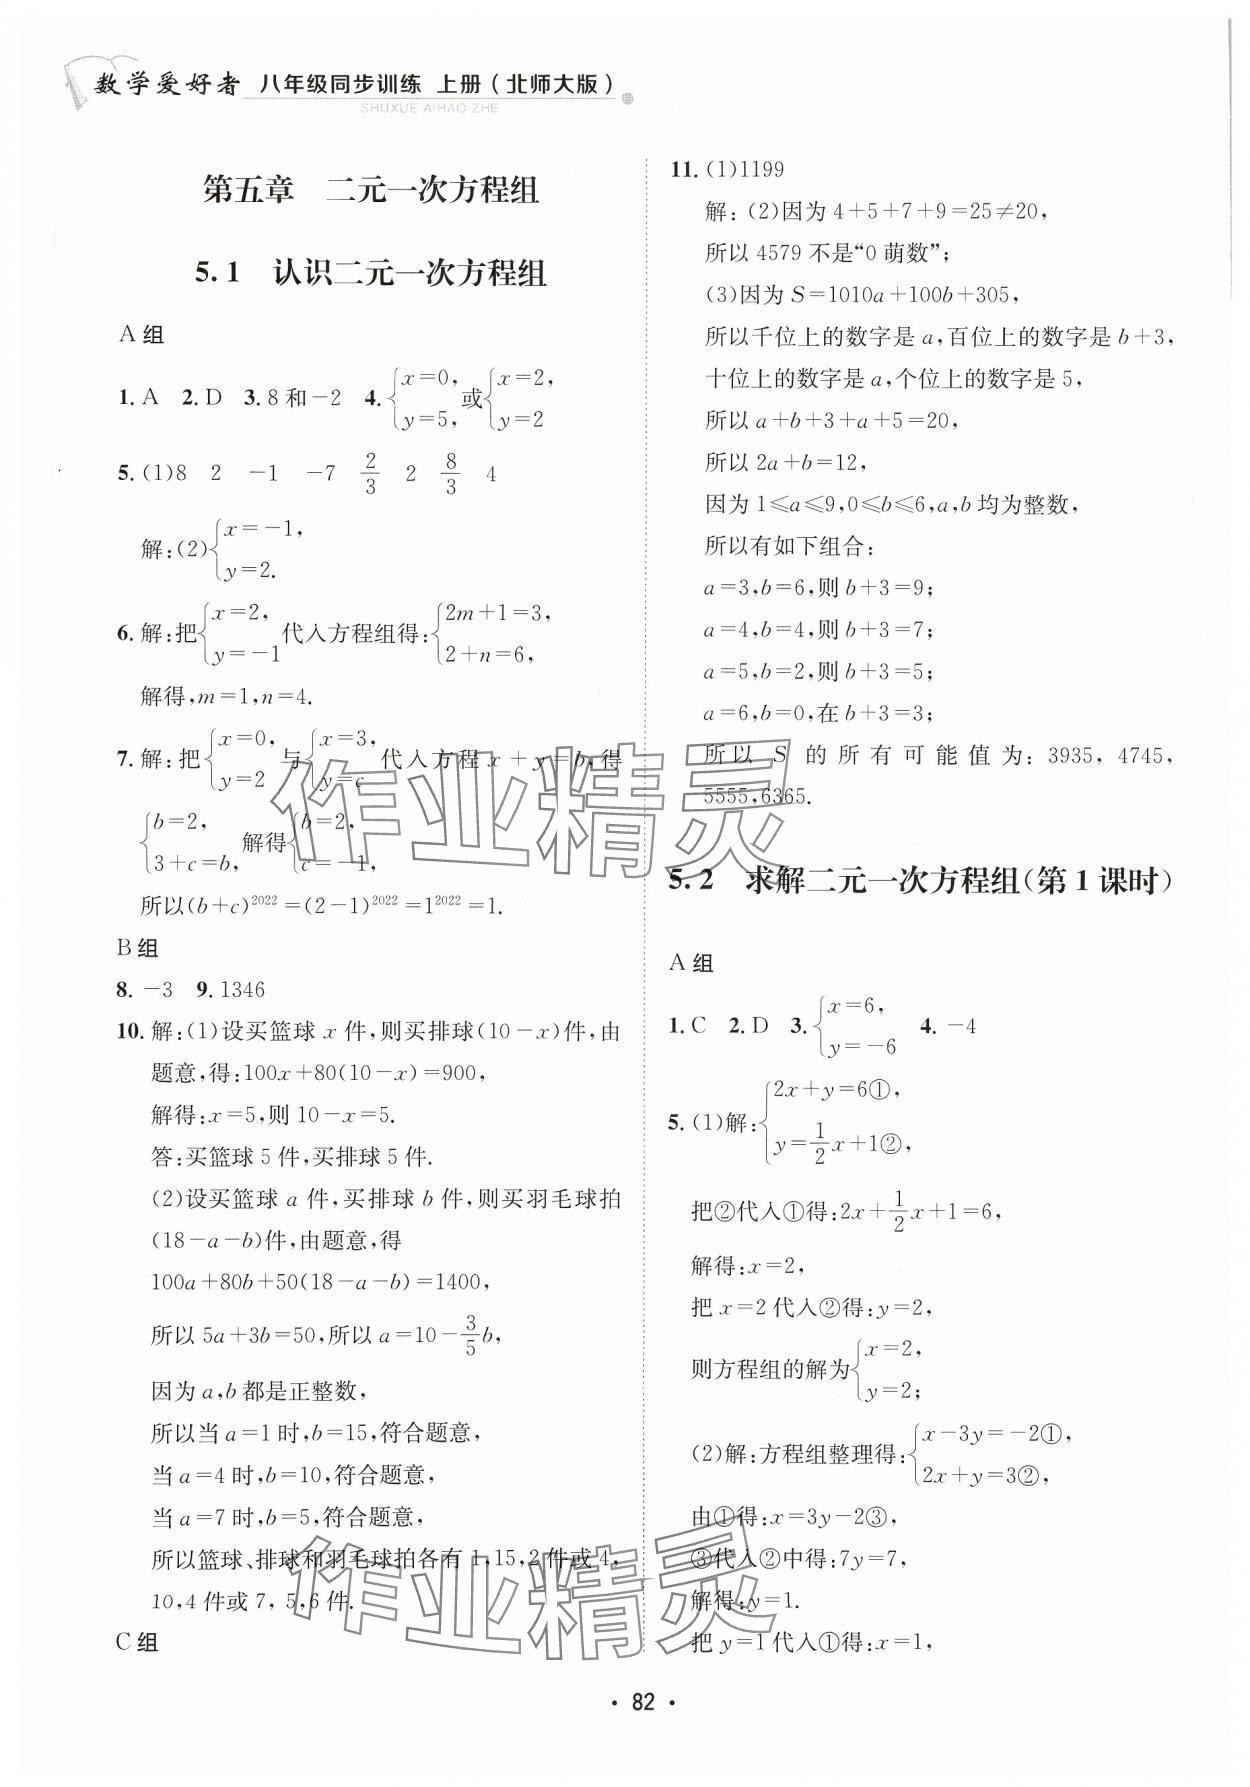 数学爱好者 八年级同步训练 上册(北师大版)
SHUXUE AIHAO ZHE
第五章 二元一次方程组
5.1 认识二元一次方程组
A组
1.A 2.D 3.8和-2 4.{x=0, y=5,或{x=2, y=2
5.(1)8 2 -1 -7 2/3 2 8/3 4
解:(2){x=-1, y=2.
6.解:把{x=2, y=-1代入方程组得:{2m+1=3, 2+n=6,
解得,m=1,n=4.
7.解:把{x=0, y=2与{x=3, y=c代入方程x+y=b,得
{b=2, 3+c=b,解得{b=2, c=-1,
所以(b+c)²⁰²²=(2-1)²⁰²²=1²⁰²²=1.
B组
8.-3 9.1346
10.解:(1)设买篮球x件,则买排球(10-x)件,由
题意,得:100x+80(10-x)=900,
解得:x=5,则10-x=5.
答:买篮球5件,买排球5件.
(2)设买篮球a件,买排球b件,则买羽毛球拍
(18-a-b)件,由题意,得
100a+80b+50(18-a-b)=1400,
所以5a+3b=50,所以a=10-3/5b,
因为a,b都是正整数,
所以当a=1时,b=15,符合题意,
当a=4时,b=10,符合题意,
当a=7时,b=5,符合题意,
所以篮球、排球和羽毛球拍各有1,15,2件或4,
10,4件或7,5,6件.
C组
11.(1)1199
解:(2)因为4+5+7+9=25≠20,
所以4579不是“0萌数”;
(3)因为S=1010a+100b+305,
所以千位上的数字是a,百位上的数字是b+3,
十位上的数字是a,个位上的数字是5,
所以a+b+3+a+5=20,
所以2a+b=12,
因为1≤a≤9,0≤b≤6,a,b均为整数,
所以有如下组合:
a=3,b=6,则b+3=9;
a=4,b=4,则b+3=7;
a=5,b=2,则b+3=5;
a=6,b=0,在b+3=3;
所以S的所有可能值为:3935,4745,
5555,6365.
5.2 求解二元一次方程组(第1课时)
A组
1.C 2.D 3.{x=6, y=-6 4.-4
5.(1)解:{2x+y=6①, y=1/2x+1②,
把②代入①得:2x+1/2x+1=6,
解得:x=2,
把x=2代入②得:y=2,
则方程组的解为{x=2, y=2;
(2)解:方程组整理得:{x-3y=-2①, 2x+y=3②,
由①得:x=3y-2③,
③代入②中得:7y=7,
解得:y=1.
把y=1代入①得:x=1,
作业精灵
作业精灵
·82·